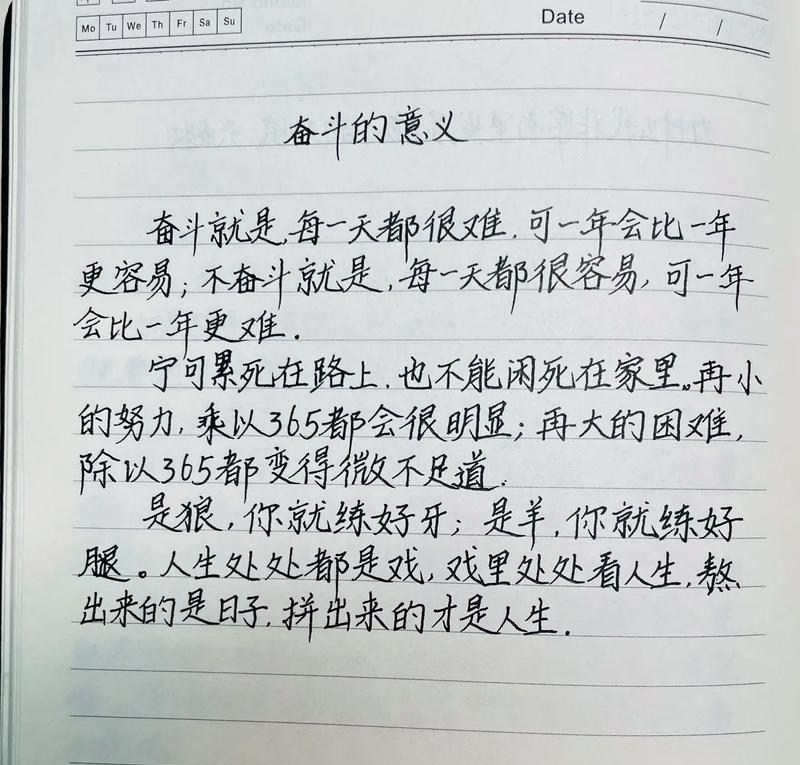 Mo Tu We Th Fr Sa Su
Date / /
奋斗的意义
奋斗就是,每一天都很难,可一年会比一年
更容易;不奋斗就是,每一天都很容易,可一年
会比一年更难.
宁可累死在路上,也不能闲死在家里。再小
的努力,乘以365都会很明显;再大的困难,
除以365都变得微不足道.
是狼,你就练好牙;是羊,你就练好
腿。人生处处都是戏,戏里处处看人生,熬
出来的是日子,拼出来的才是人生.